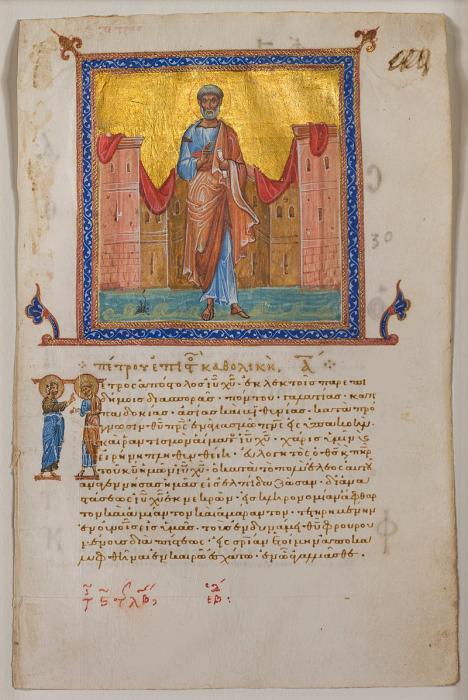 πέτρου ἐπιστ καθολική. Α
έτρος ἀπόστολος ἰῦ χῦ· ἐκλεκτοῖς παρεπι
δήμοις διασπορᾶς· πόντου· γαλατίας· καπ
παδοκίας· ἀσίας καὶ βιθυνίας· κατὰ πρό
γνωσιν θῦ πρς ἐν ἁγιασμῷ πνς εἰς ὑπακοὴν
καὶ ραντισμὸν αἵματος ἰῦ χῦ· χάρις ὑμῖν καὶ
εἰρήνη πληθυνθείη· εὐλογητὸς ὁ θς καὶ πηρ
τοῦ κῦ ἡμῶν ἰῦ χῦ· ὁ κατὰ τὸ πολὺ ἔλεος αὐτοῦ
ἀναγεννήσας ἡμᾶς εἰς ἐλπίδα ζῶσαν· δι ἀνα
στάσεως ἰῦ χῦ ἐκ νεκρῶν· εἰς κληρονομίαν ἄφθαρ
τον καὶ ἀμίαντον καὶ ἀμάραντον· τετηρημένην
ἐν οὐνοῖς εἰς ὑμᾶς· τοὺς ἐν δυνάμει θῦ φρουρου
μένους διὰ πίστεως· εἰς σρίαν ἑτοίμην ἀποκα
λυφθῆναι ἐν καιρῷ ἐσχάτῳ· ἐν ᾧ ἀγαλλιᾶσθε·
30